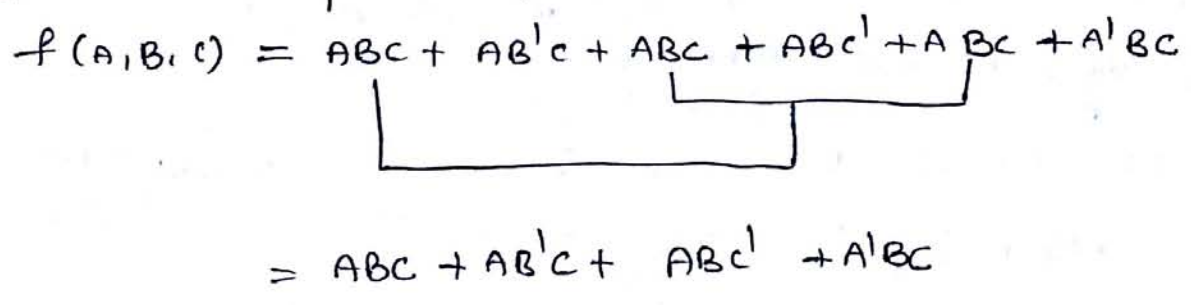 f(A,B,C) = ABC + AB'C + ABC + ABC' + ABC + A'BC
= ABC + AB'C + ABC' + A'BC